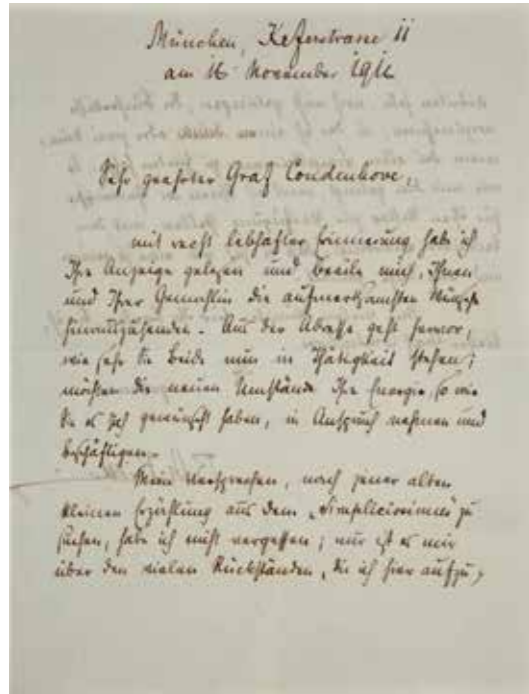 München, Keferstrasse 11
am 16 November 1914
Sehr geehrter Graf Coudenhove,
mit recht lebhafter Erinnerung habe ich
Ihre Anzeige gelesen und beeile mich, Ihnen
und Ihrer Gemahlin die aufmerksamsten Wünsche
hinauszusenden. Aus der Adresse geht hervor,
wie sehr Sie beide nun in Thätigkeit stehen;
möchten die neuen Umstände Ihre Energie, so wie
Sie es sich gewünscht haben, in Anspruch nehmen und
beschäftigen.
Mein Versprechen, nach jener alten
kleinen Erzählung aus dem „Simplicissimus" zu
suchen, habe ich nicht vergessen; nur ist es mir
über den vielen Rückständen, die ich hier aufzu,